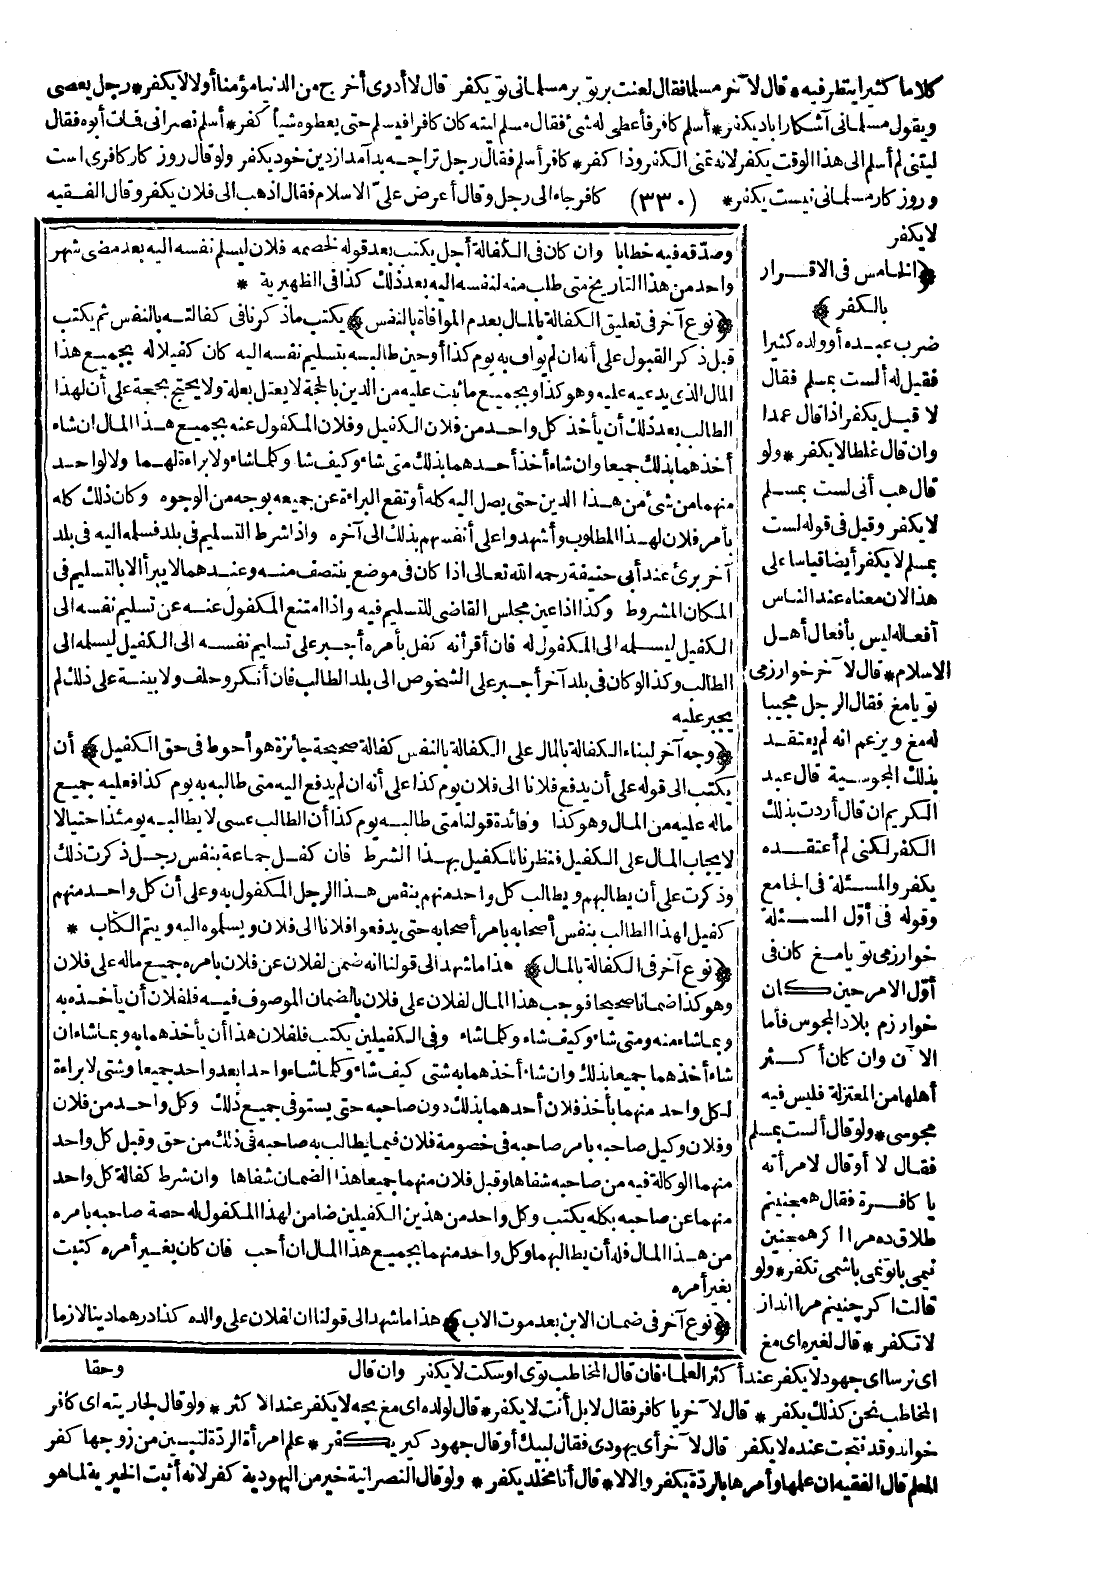 كلاما كثيرا ينظر فيه * قال لآخر مسلما فقال لعنت بر تو بر مسلماني تو يكفر قال لا أدرى أخرج من الدنيا مؤمنا أو لا لا يكفر * رجل يعصى
ويقول مسلماني آشكارا بايد يكفر * أسلم كافر فأعطى له شئ فقال مسلم ليته كان كافرا فيسلم حتى يعطوه شيأ كفر * أسلم نصراني فمات أبوه فقال
ليتني لم أسلم الى هذا الوقت يكفر لانه تمنى الكفر وذا كفر * كافر أسلم فقال رجل تراچه بد آمد از دين خود يكفر ولو قال روز كار كافرى است
وروز كار مسلماني نيست يكفر * (٣٣٠) كافر جاء الى رجل وقال أعرض على الاسلام فقال اذهب الى فلان يكفر وقال الفقيه
لا يكفر
﴿الخامس فى الاقرار
بالكفر﴾
ضرب عبده أو ولده كثيرا
فقيل له ألست بمسلم فقال
لا قيل يكفر اذا قال عمدا
وان قال غلطا لا يكفر * ولو
قال هب أنى لست بمسلم
لا يكفر وقيل فى قوله لست
بمسلم لا يكفر أيضا قياسا على
هذا لان معناه عند الناس
أفعاله ليس بأفعال أهل
الاسلام * قال لآخر خوارزمى
تو يا مغ فقال الرجل مجيبا
له مغ ويزعم انه لم يعتقد
بذلك المجوسية قال عبد
الكريم ان قال أردت بذلك
الكفر لكنى لم أعتقده
يكفر والمسئلة فى الجامع
وقوله فى أوّل المسئلة
خوارزمى تو يا مغ كان فى
أوّل الامر حين كان
خوارزم بلاد المجوس فأما
الآن وان كان أكثر
أهلها من المعتزلة فليس فيه
مجوسى * ولو قال ألست بمسلم
فقال لا أو قال لامرأته
يا كافرة فقال همچنينم
طلاق ده مرا اكر همچنين
نيمى با تو نمى باشمى تكفر * ولو
قالت اكر چنينم مرا انداز
لا تكفر * قال لغيره اى مغ
وصدّقه فيه خطابا وان كان فى الكفالة أجل يكتب بعد قوله لخصمه فلان ليسلم نفسه اليه بعد مضى شهر
واحد من هذا التاريخ متى طلب منه لنفسه اليه بعد ذلك كذا فى الظهيرية *
﴿نوع آخر فى تعليق الكفالة بالمال بعدم الموافاة بالنفس﴾ يكتب ما ذكرنا فى كفالته بالنفس ثم يكتب
قبل ذكر القبول على أنه ان لم يواف به يوم كذا أو حين طالبه بتسليم نفسه اليه كان كفيلا له بجميع هذا
المال الذى يدعيه عليه وهو كذا وبجميع ما ثبت عليه من الدين بالحجة لا يعتل بعلة ولا يحتج بحجة على أن لهذا
الطالب بعد ذلك أن يأخذ كل واحد من فلان الكفيل وفلان المكفول عنه بجميع هذا المال ان شاء
أخذهما بذلك جميعا وان شاء أخذ أحدهما بذلك متى شاء وكيف شا وكلما شاء ولا براءة لهما ولا لواحد
منهما من شئ من هذا الدين حتى يصل اليه كله أو تقع البراءة عن جميعه بوجه من الوجوه وكان ذلك كله
بأمر فلان لهذا المطلوب وأشهدوا على أنفسهم بذلك الى آخره واذا شرط التسليم فى بلد فسلمه اليه فى بلد
آخر برئ عند أبى حنيفة رحمه الله تعالى اذا كان فى موضع ينتصف منه وعندهما لا يبرأ الا بالتسليم فى
المكان المشروط وكذا اذا عين مجلس القاضى للتسليم فيه واذا امتنع المكفول عنه عن تسليم نفسه الى
الكفيل ليسلمه الى المكفول له فان أقر أنه كفل بأمره أجبر على تسليم نفسه الى الكفيل ليسلمه الى
الطالب وكذا لو كان فى بلد آخر أجبر على الشخوص الى بلد الطالب فان أنكر وحلف ولا بينة على ذلك لم
يجبر عليه
﴿وجه آخر لبناء الكفالة بالمال على الكفالة بالنفس كفالة صحيحة جائزة هو أحوط فى حق الكفيل﴾ أن
يكتب الى قوله على أن يدفع فلانا الى فلان يوم كذا على أنه ان لم يدفع اليه متى طالبه به يوم كذا فعليه جميع
ماله عليه من المال وهو كذا وفائدة قولنا متى طالبه يوم كذا أن الطالب عسى لا يطالبه يومئذ احتيالا
لايجاب المال على الكفيل فنظرنا للكفيل بهذا الشرط فان كفل جماعة بنفس رجل ذكرت ذلك
وذكرت على أن يطالبهم ويطالب كل واحد منهم بنفس هذا الرجل المكفول به وعلى أن كل واحد منهم
كفيل لهذا الطالب بنفس أصحابه بامر أصحابه حتى يدفعوا فلانا الى فلان ويسلموه اليه ويتم الكتاب *
﴿نوع آخر فى الكفالة بالمال﴾ هذا ما شهد الى قولنا انه ضمن لفلان عن فلان بامره جميع ماله على فلان
وهو كذا ضمانا صحيحا فوجب هذا المال لفلان على فلان بالضمان الموصوف فيه فلفلان أن يأخذه به
وبما شاء منه ومتى شاء وكيف شاء وكلما شاء وفى الكفيلين يكتب فلفلان هذا أن يأخذهما به وبما شاء ان
شاء أخذهما جميعا بذلك وان شاء أخذهما به شتى كيف شاء وكلما شاء واحدا بعد واحد جميعا وشتى لا براءة
لكل واحد منهما بأخذ فلان أحدهما بذلك دون صاحبه حتى يستوفى جميع ذلك وكل واحد من فلان
وفلان وكيل صاحبه بامر صاحبه فى خصومة فلان فيما يطالب به صاحبه فى ذلك من حق وقبل كل واحد
منهما الوكالة فيه من صاحبه شفاها وقبل فلان منهما جميعا هذا الضمان شفاها وان شرط كفالة كل واحد
منهما عن صاحبه بكله يكتب وكل واحد من هذين الكفيلين ضامن لهذا المكفول له حصة صاحبه بامره
من هذا المال فله أن يطالبهما وكل واحد منهما بجميع هذا المال ان أحب فان كان بغير أمره كتبت
بغير أمره
﴿نوع آخر فى ضمان الابن بعد موت الاب﴾ هذا ما شهد الى قولنا ان لفلان على والده كذا درهما دينا لازما
وحقا
اى ترسا اى جهود لا يكفر عند أكثر العلماء فان قال المخاطب توى او سكت لا يكفر وان قال
المخاطب نحن كذلك يكفر * قال لآخر يا كافر فقال لا بل أنت لا يكفر * قال لولده اى مغ بچه لا يكفر عند الاكثر * ولو قال لجاريته اى كافر
خواند وقد نتجت عنده لا يكفر قال لآخر أى يهودى فقال لبيك أو قال جهود كير يكفر * علم امرأة الردّة لتبين من زوجها كفر
المعلم قال الفقيه ان علمها وأمرها بالردّة يكفر والا لا * قال أنا مخلد يكفر * ولو قال النصرانية خير من اليهودية كفر لانه أثبت الخيرية لما هو